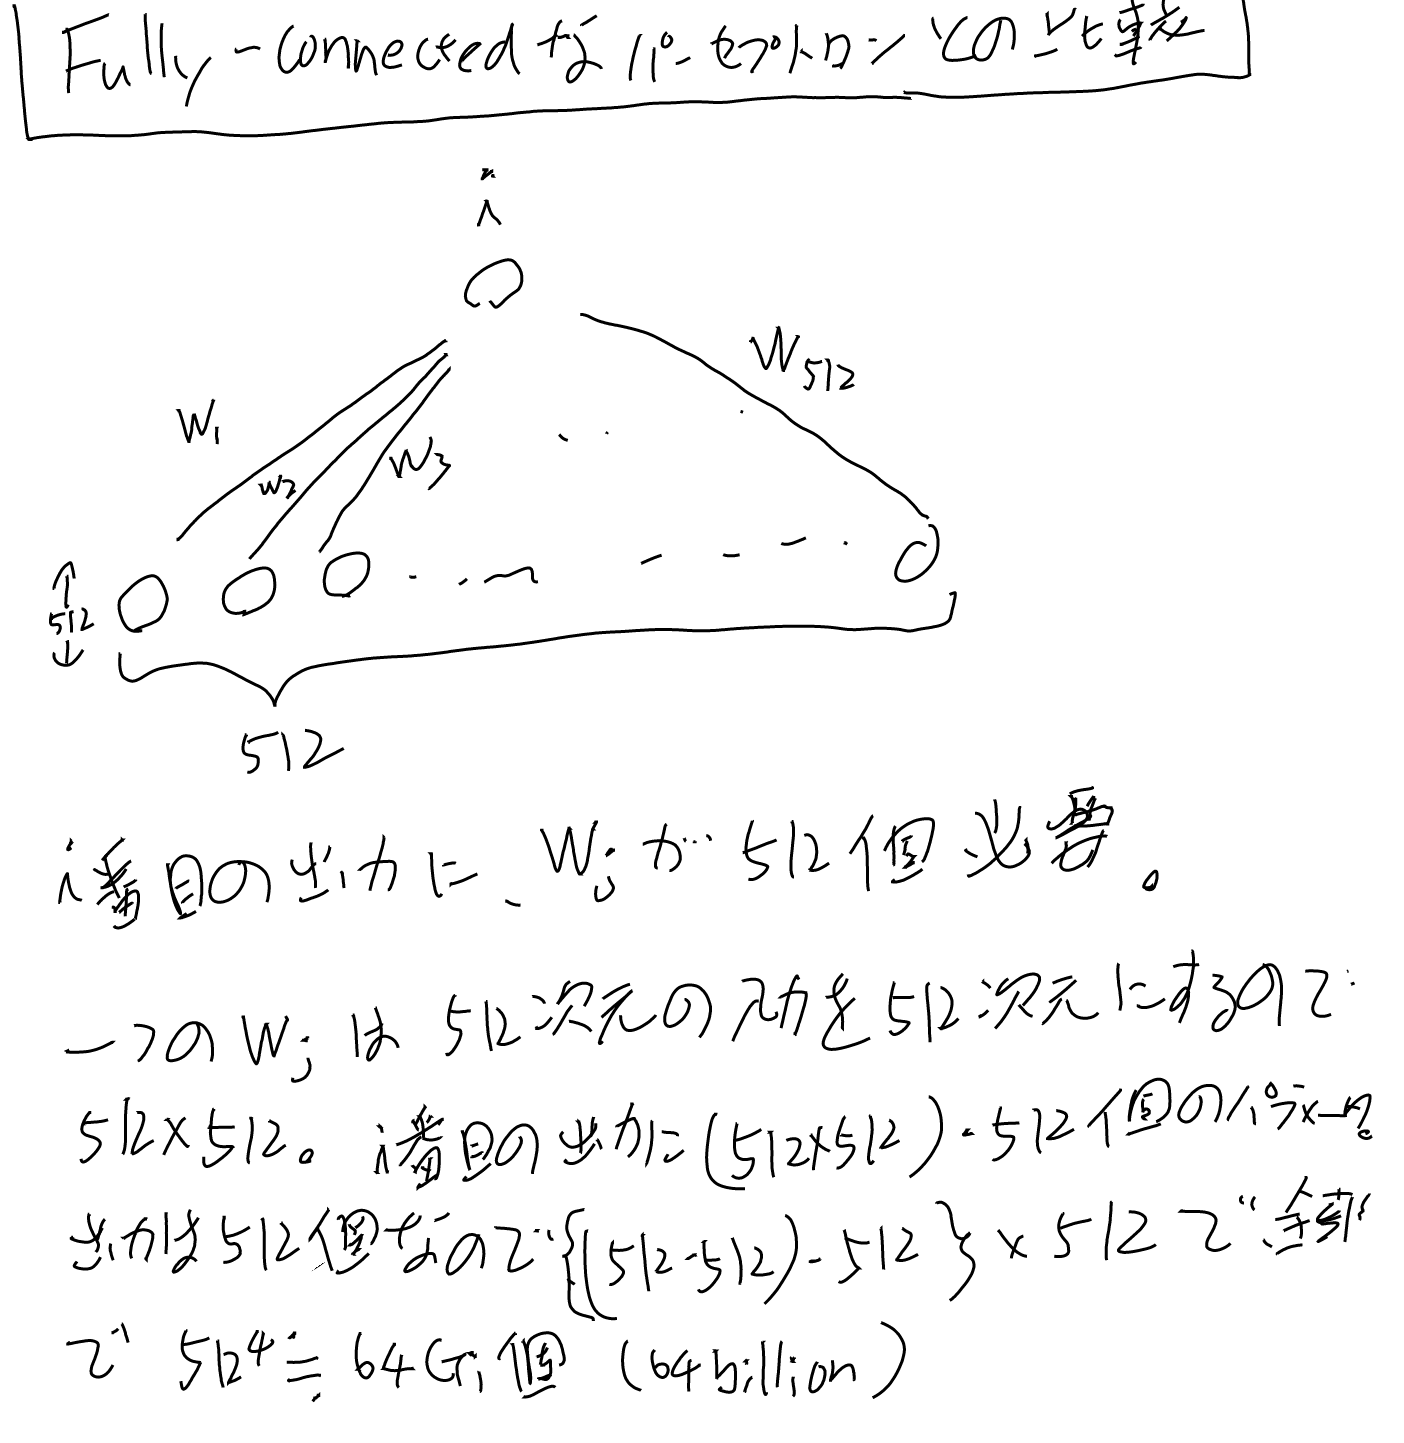 Fully-connectedなパーセプトロンとの比較
i
W1
W2
W3
W512
512
512
i番目の出力に、Wjが512個必要。
一つのWjは512次元の入力を512次元にするので
512×512。i番目の出力に(512×512)・512個のパラメータ。
出力は512個なので{(512・512)・512}×512で全部
で 512⁴≒64Gi個 (64billion)